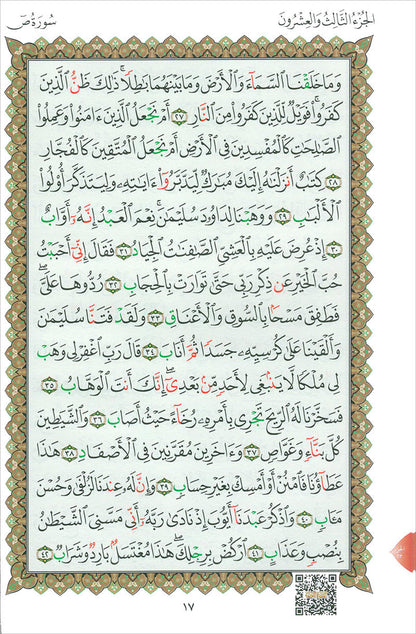 الجزء الثالث والعشرون
سورة ص
وَمَا خَلَقْنَا ٱلسَّمَآءَ وَٱلْأَرْضَ وَمَا بَيْنَهُمَا بَٰطِلًا ۚ ذَٰلِكَ ظَنُّ ٱلَّذِينَ
كَفَرُوا۟ ۚ فَوَيْلٌ لِّلَّذِينَ كَفَرُوا۟ مِنَ ٱلنَّارِ ٢٧ أَمْ نَجْعَلُ ٱلَّذِينَ ءَامَنُوا۟ وَعَمِلُوا۟
ٱلصَّٰلِحَٰتِ كَٱلْمُفْسِدِينَ فِى ٱلْأَرْضِ أَمْ نَجْعَلُ ٱلْمُتَّقِينَ كَٱلْفُجَّارِ
٢٨ كِتَٰبٌ أَنزَلْنَٰهُ إِلَيْكَ مُبَٰرَكٌ لِّيَدَّبَّرُوٓا۟ ءَايَٰتِهِۦ وَلِيَتَذَكَّرَ أُو۟لُوا۟
ٱلْأَلْبَٰبِ ٢٩ وَوَهَبْنَا لِدَاوُۥدَ سُلَيْمَٰنَ ۚ نِعْمَ ٱلْعَبْدُ ۖ إِنَّهُۥٓ أَوَّابٌ
٣٠ إِذْ عُرِضَ عَلَيْهِ بِٱلْعَشِىِّ ٱلصَّٰفِنَٰتُ ٱلْجِيَادُ ٣١ فَقَالَ إِنِّىٓ أَحْبَبْتُ
حُبَّ ٱلْخَيْرِ عَن ذِكْرِ رَبِّى حَتَّىٰ تَوَارَتْ بِٱلْحِجَابِ ٣٢ رُدُّوهَا عَلَىَّ ۖ
فَطَفِقَ مَسْحًۢا بِٱلسُّوقِ وَٱلْأَعْنَاقِ ٣٣ وَلَقَدْ فَتَنَّا سُلَيْمَٰنَ
وَأَلْقَيْنَا عَلَىٰ كُرْسِيِّهِۦ جَسَدًا ثُمَّ أَنَابَ ٣٤ قَالَ رَبِّ ٱغْفِرْ لِى وَهَبْ
لِى مُلْكًا لَّا يَنۢبَغِى لِأَحَدٍ مِّنۢ بَعْدِىٓ ۖ إِنَّكَ أَنتَ ٱلْوَهَّابُ ٣٥
فَسَخَّرْنَا لَهُ ٱلرِّيحَ تَجْرِى بِأَمْرِهِۦ رُخَآءً حَيْثُ أَصَابَ ٣٦ وَٱلشَّيَٰطِينَ
كُلَّ بَنَّآءٍ وَغَوَّاصٍ ٣٧ وَءَاخَرِينَ مُقَرَّنِينَ فِى ٱلْأَصْفَادِ ٣٨ هَٰذَا
عَطَآؤُنَا فَٱمْنُنْ أَوْ أَمْسِكْ بِغَيْرِ حِسَابٍ ٣٩ وَإِنَّ لَهُۥ عِندَنَا لَزُلْفَىٰ وَحُسْنَ
مَـَٔابٍ ٤٠ وَٱذْكُرْ عَبْدَنَآ أَيُّوبَ إِذْ نَادَىٰ رَبَّهُۥٓ أَنِّى مَسَّنِىَ ٱلشَّيْطَٰنُ
بِنُصْبٍ وَعَذَابٍ ٤١ ٱرْكُضْ بِرِجْلِكَ ۖ هَٰذَا مُغْتَسَلٌۢ بَارِدٌ وَشَرَابٌ ٤٢
١٧